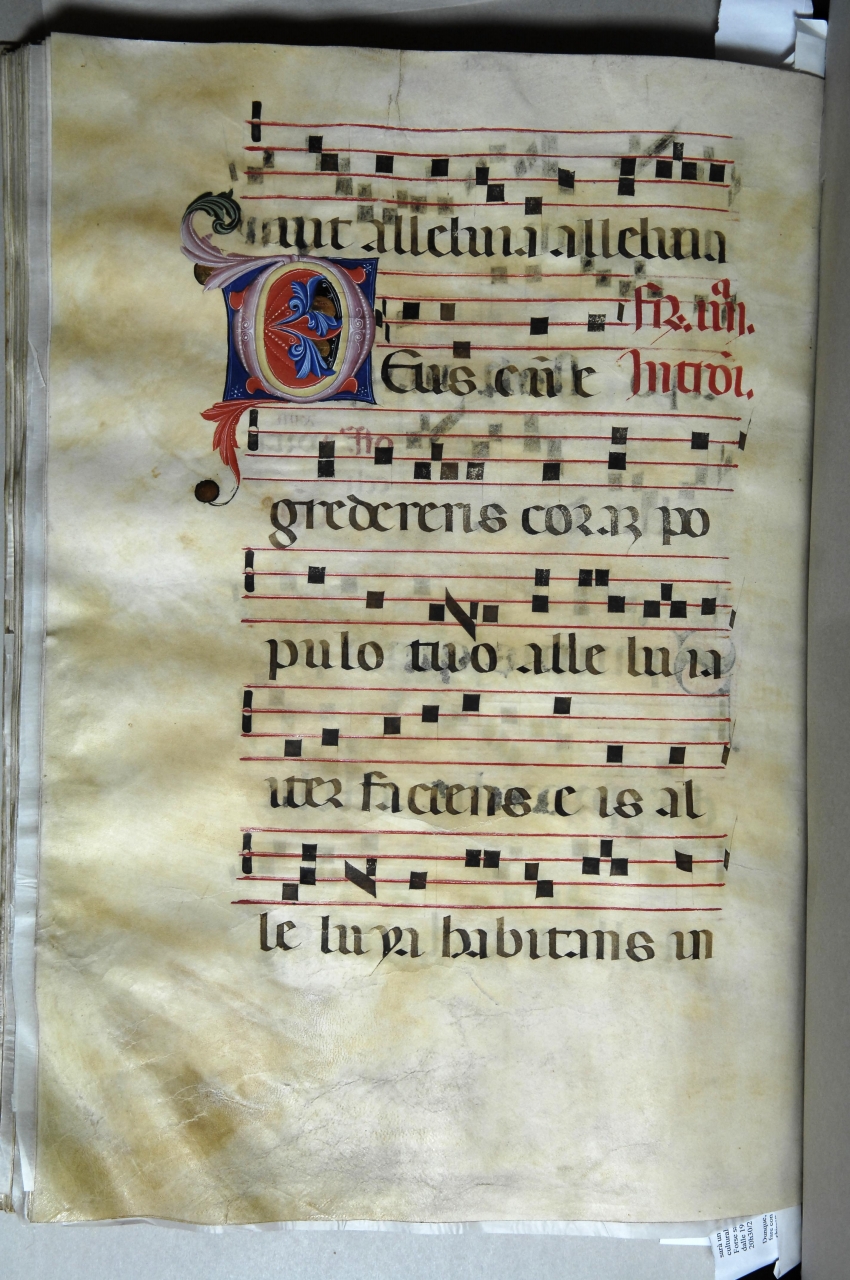 aut alleluia alleluia
Fr. iiii.
DEus cū e Introi.
grederens coraz po
pulo tuo alle lu ia
iter faciens e is al
le lu ya habitans in